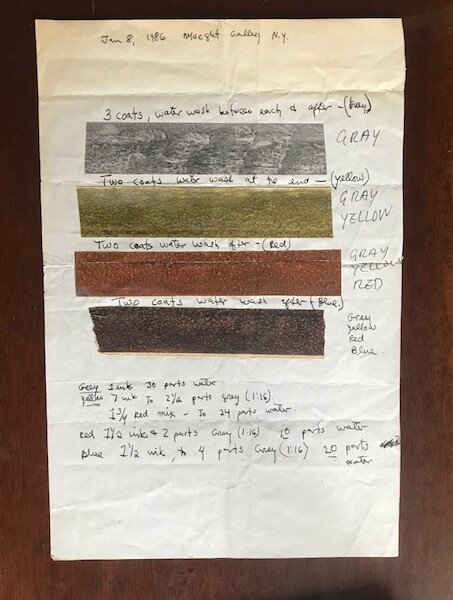 Jan 8, 1986 Maeght Gallery N.Y.
3 coats, water wash between each & after - (Grey)
GRAY
Two coats water wash at the end - (yellow)
GRAY
YELLOW
Two coats water wash after - (Red)
GRAY
YELLOW
RED
Two coats water wash after (Blue.)
Grey
Yellow
Red
Blue.
Grey 1 ink 30 parts water
yellow 7 ink To 2 1/2 parts gray (1:16).
1 3/4 Red mix - To 24 parts water.
Red 1 1/2 ink & 2 parts Grey (1:16) 10 parts water
Blue 1 1/2 ink, to 4 parts Grey (1:16) 20 parts
water